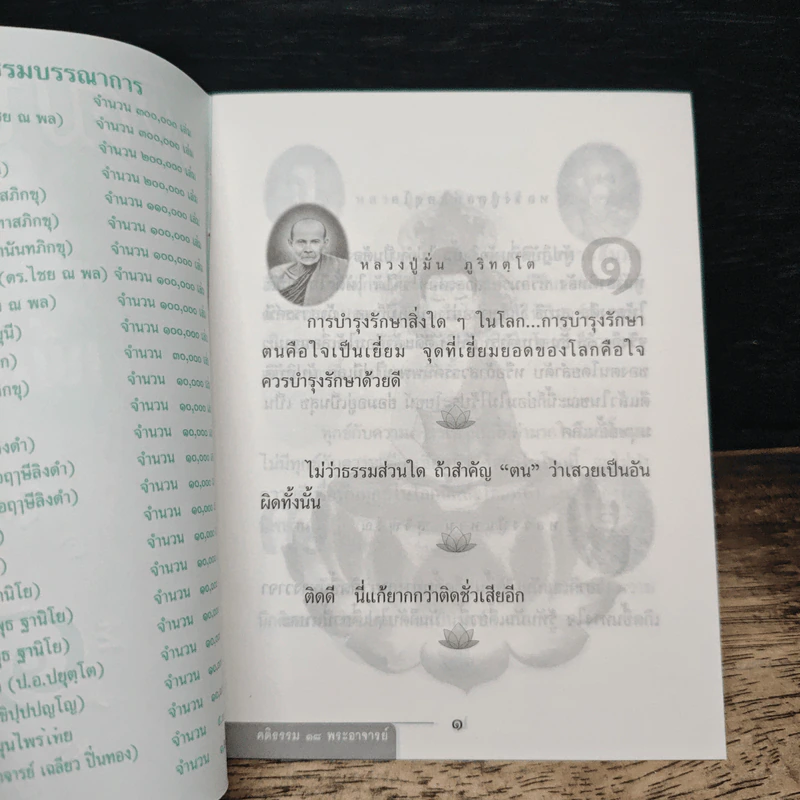 รรมบรรณาการ
จำนวน ๓๐๐,๐๐๐ เล่ม
ชย ณ พล) จำนวน ๓๐๐,๐๐๐ เล่ม
จำนวน ๒๐๐,๐๐๐ เล่ม
จำนวน ๒๐๐,๐๐๐ เล่ม
สภิกขุ) จำนวน ๑๑๐,๐๐๐ เล่ม
ทาสภิกขุ) จำนวน ๑๐๐,๐๐๐ เล่ม
านันทภิกขุ) จำนวน ๑๐๐,๐๐๐ เล่ม
(ดร.ไชย ณ พล) จำนวน ๑๐๐,๐๐๐ เล่ม
ย ณ พล) จำนวน ๑๐๐,๐๐๐ เล่ม
จำนวน ๑๐๐,๐๐๐ เล่ม
จำนวน ๓๐,๐๐๐ เล่ม
กขุ) จำนวน ๑๐,๐๐๐ เล่ม
จำนวน ๑๐,๐๐๐ เล่ม
ลิงดำ) จำนวน ๑๐,๐๐๐ เล่ม
อฤาษีลิงดำ) จำนวน ๑๐,๐๐๐ เล่ม
อฤาษีลิงดำ) จำนวน ๑๐,๐๐๐
จำนวน ๑๐,๐๐๐
จำนวน ๑๐,๐๐๐
านิโย) จำนวน ๑๐,๐๐๐
พุธ ฐานิโย) จำนวน
พุธ ฐานิโย) จำนวน
(ป.อ.ปยุตฺโต) จำนวน
จำนวน
จำนวน
าจารย์ เฉลียว ปิ่นทอง) จำนวน
หลวงปู่มั่น ภูริทตฺโต
๑
การบำรุงรักษาสิ่งใด ๆ ในโลก...การบำรุงรักษา
ตนคือใจเป็นเยี่ยม จุดที่เยี่ยมยอดของโลกคือใจ
ควรบำรุงรักษาด้วยดี
ไม่ว่าธรรมส่วนใด ถ้าสำคัญ “ตน” ว่าเสวยเป็นอัน
ผิดทั้งนั้น
ติดดี นี่แก้ยากกว่าติดชั่วเสียอีก
คติธรรม ๑๘ พระอาจารย์
๑